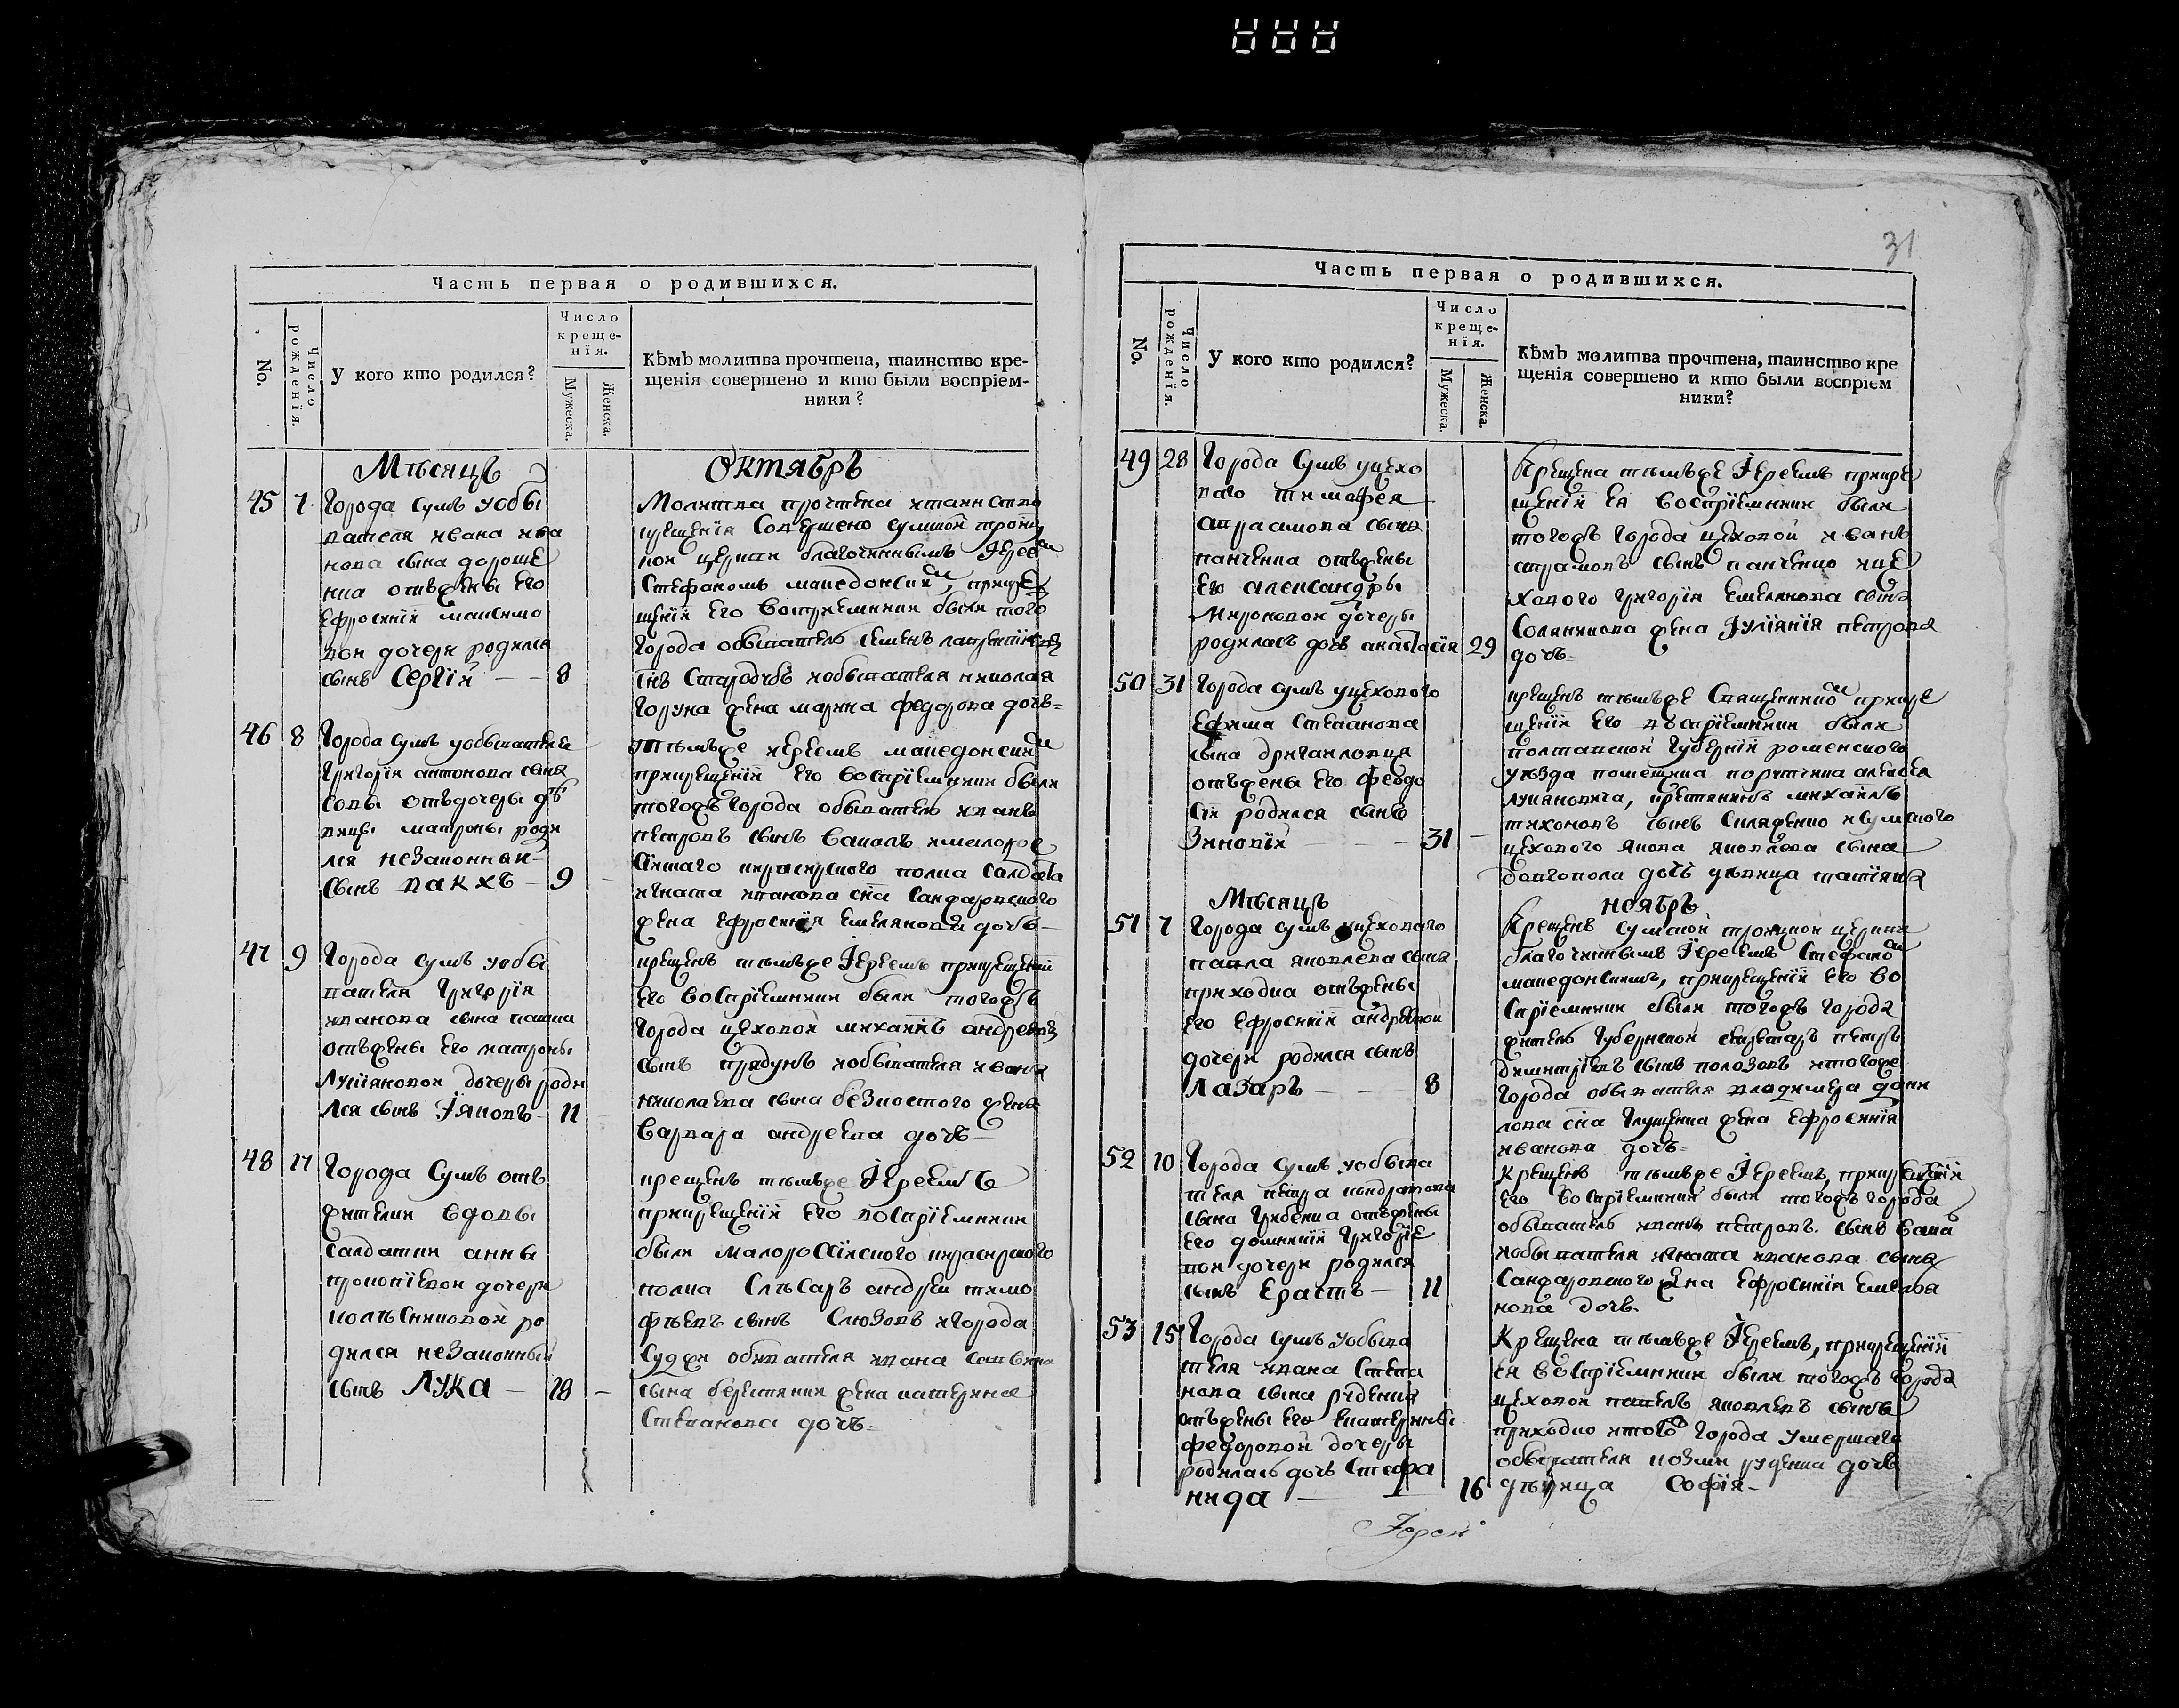 Часть первая о родившихся.
No.
Число рожденія.
У кого кто родился?
Число креще-
нія.
Мужеска.
Женска.
Кѣмъ молитва прочтена, таинство кре-
щенія совершено и кто были воспріем-
ники?
Мѣсяцъ Октябрь
45 7 Города Сумъ уобы
вателя ивана ива
нова сына дороше
нка отъжены его
Ефросиніи максимо
вои дочери родился
сынъ Сергій 8
Молитва прочтена итаинство
крещенія Совершено сумской троиц
кои церкви благочиннымъ Іереемъ
Стефаномъ македонскимъ, прикре
щеніи Его Воспріемники были того
города обыватель семенъ
Стародубъ иобывателя николая
горуна жена марина федорова дочь
46 8 Города сумъ уобывателя
Григорія антонова сына
отъдочери дѣ
вицы матроны роди
лся незаконный
сынъ вакхъ 9
тѣмъже иереемъ македонскимъ
прикрещеніи Его Воспріемники были
тогожъ города обыватель иванъ
петровъ сынъ ималорос
сійскаго кирасирского полка Салдата
игната иванова сна Санжаровского
жена Ефросинія Емелянова дочь
47 9 Города сумъ уобы
вателя Григорія
иванова сына
отъжены Его матроны
Лукіяновои дочери роди
лся сынъ Іяковъ 11
крещенъ тѣмъже Іереемъ прикрещеніи
Его Воспріемники были тогожъ
города цеховой михаилъ андреевъ
сынъ иобывателя ивана
николаева сына безкостого жена
Варвара андреева дочь
48 17 Города Сумъ отъ
жителки вдовы
салдатки анны
прокопіевои дочери
колѣсниковой ро
дился незаконный
сынъ Лука 18
крещенъ тѣмъже Іереемъ
прикрещеніи Его воспріемники
были малороссійского кирасирского
полка Слѣсарь андреи тимо
фѣевъ сынъ Слюзовъ игорода
Суджи обывателя ивана
сына жена катерина
Степанова дочь
31
Часть первая о родившихся.
No.
Число рожденія.
У кого кто родился?
Число
креще-
нія.
Мужеска.
Женска.
Кѣмъ молитва прочтена, таинство кре
щенія совершено и кто были воспріем
ники?
49 28 Города Сумъ уцехо
ваго тимофея
сына
панченка отъжены
Его александры
Мироновои дочери
родилась дочь анастасія 29
Крещена тѣмъже Іереемъ прикре
щеніи Ея Воспріемники были
тогожъ города цеховой иванъ
сынъ панченко ице
хового григорія Емелянова сына
Соляникова жена Іуліянія петрова
дочь
50 31 Города сумъ уцехового
Ефима Степанова
сына
отъжены Его феодо
сіи родился сынъ
Зиновіи 31
крещенъ тѣмъже Священникомъ прикре
щеніи Его воспріемники были
полтавской Губерніи роменского
уѣзда помещика порутчика алексея
Лукяновича, крестянинъ михаилъ
тихоновъ сынъ Скляренко иСумского
цехового якова яковлева сына
дочь дѣвица татіяна
Мѣсяцъ Ноябрь
51 7 Города Сумъ уцеховаго
павла яковлева сына
приходка отъжены
Его Ефросиніи андреевои
дочери родился сынъ
Лазарь 8
Крещенъ сумской троицкои церкви
благочиннымъ Іереемъ Стефаномъ
македонскимъ, прикрещеніи Его Во
спріемники были тогожъ города
житель Губернской секретарь петръ
димитріевъ сынъ полозовъ итогоже
города обывателя владимера дани
лова сна Глущенка жена Ефросинія
иванова дочь
52 10 Города Сумъ уобыва
теля петра кондратова
сына Грибенка отъжены
Его домникіи Григоріе
вои дочери родился
сынъ Ерастъ 11
Крещенъ тѣмъже Іереемъ, прикрещеніи
Его Воспріемники были тогожъ города
обыватель иванъ петровъ сынъ
иобывателя игната иванова сына
Санжаровского жена Ефросинія Емелья
нова дочь
53 15 Города Сумъ уобыва
теля ивана Степа
нова сына
отъжены Его Екатерины
федоровои дочери
родилась дочь Стефа
нида 16
Крещена тѣмъже Іереемъ, прикрещеніи
ея Воспріемники были тогожъ города
цеховои павелъ яковлевъ сынъ
приходко итого города умершаго
обывателя козми руденка дочь
дѣвица Софія